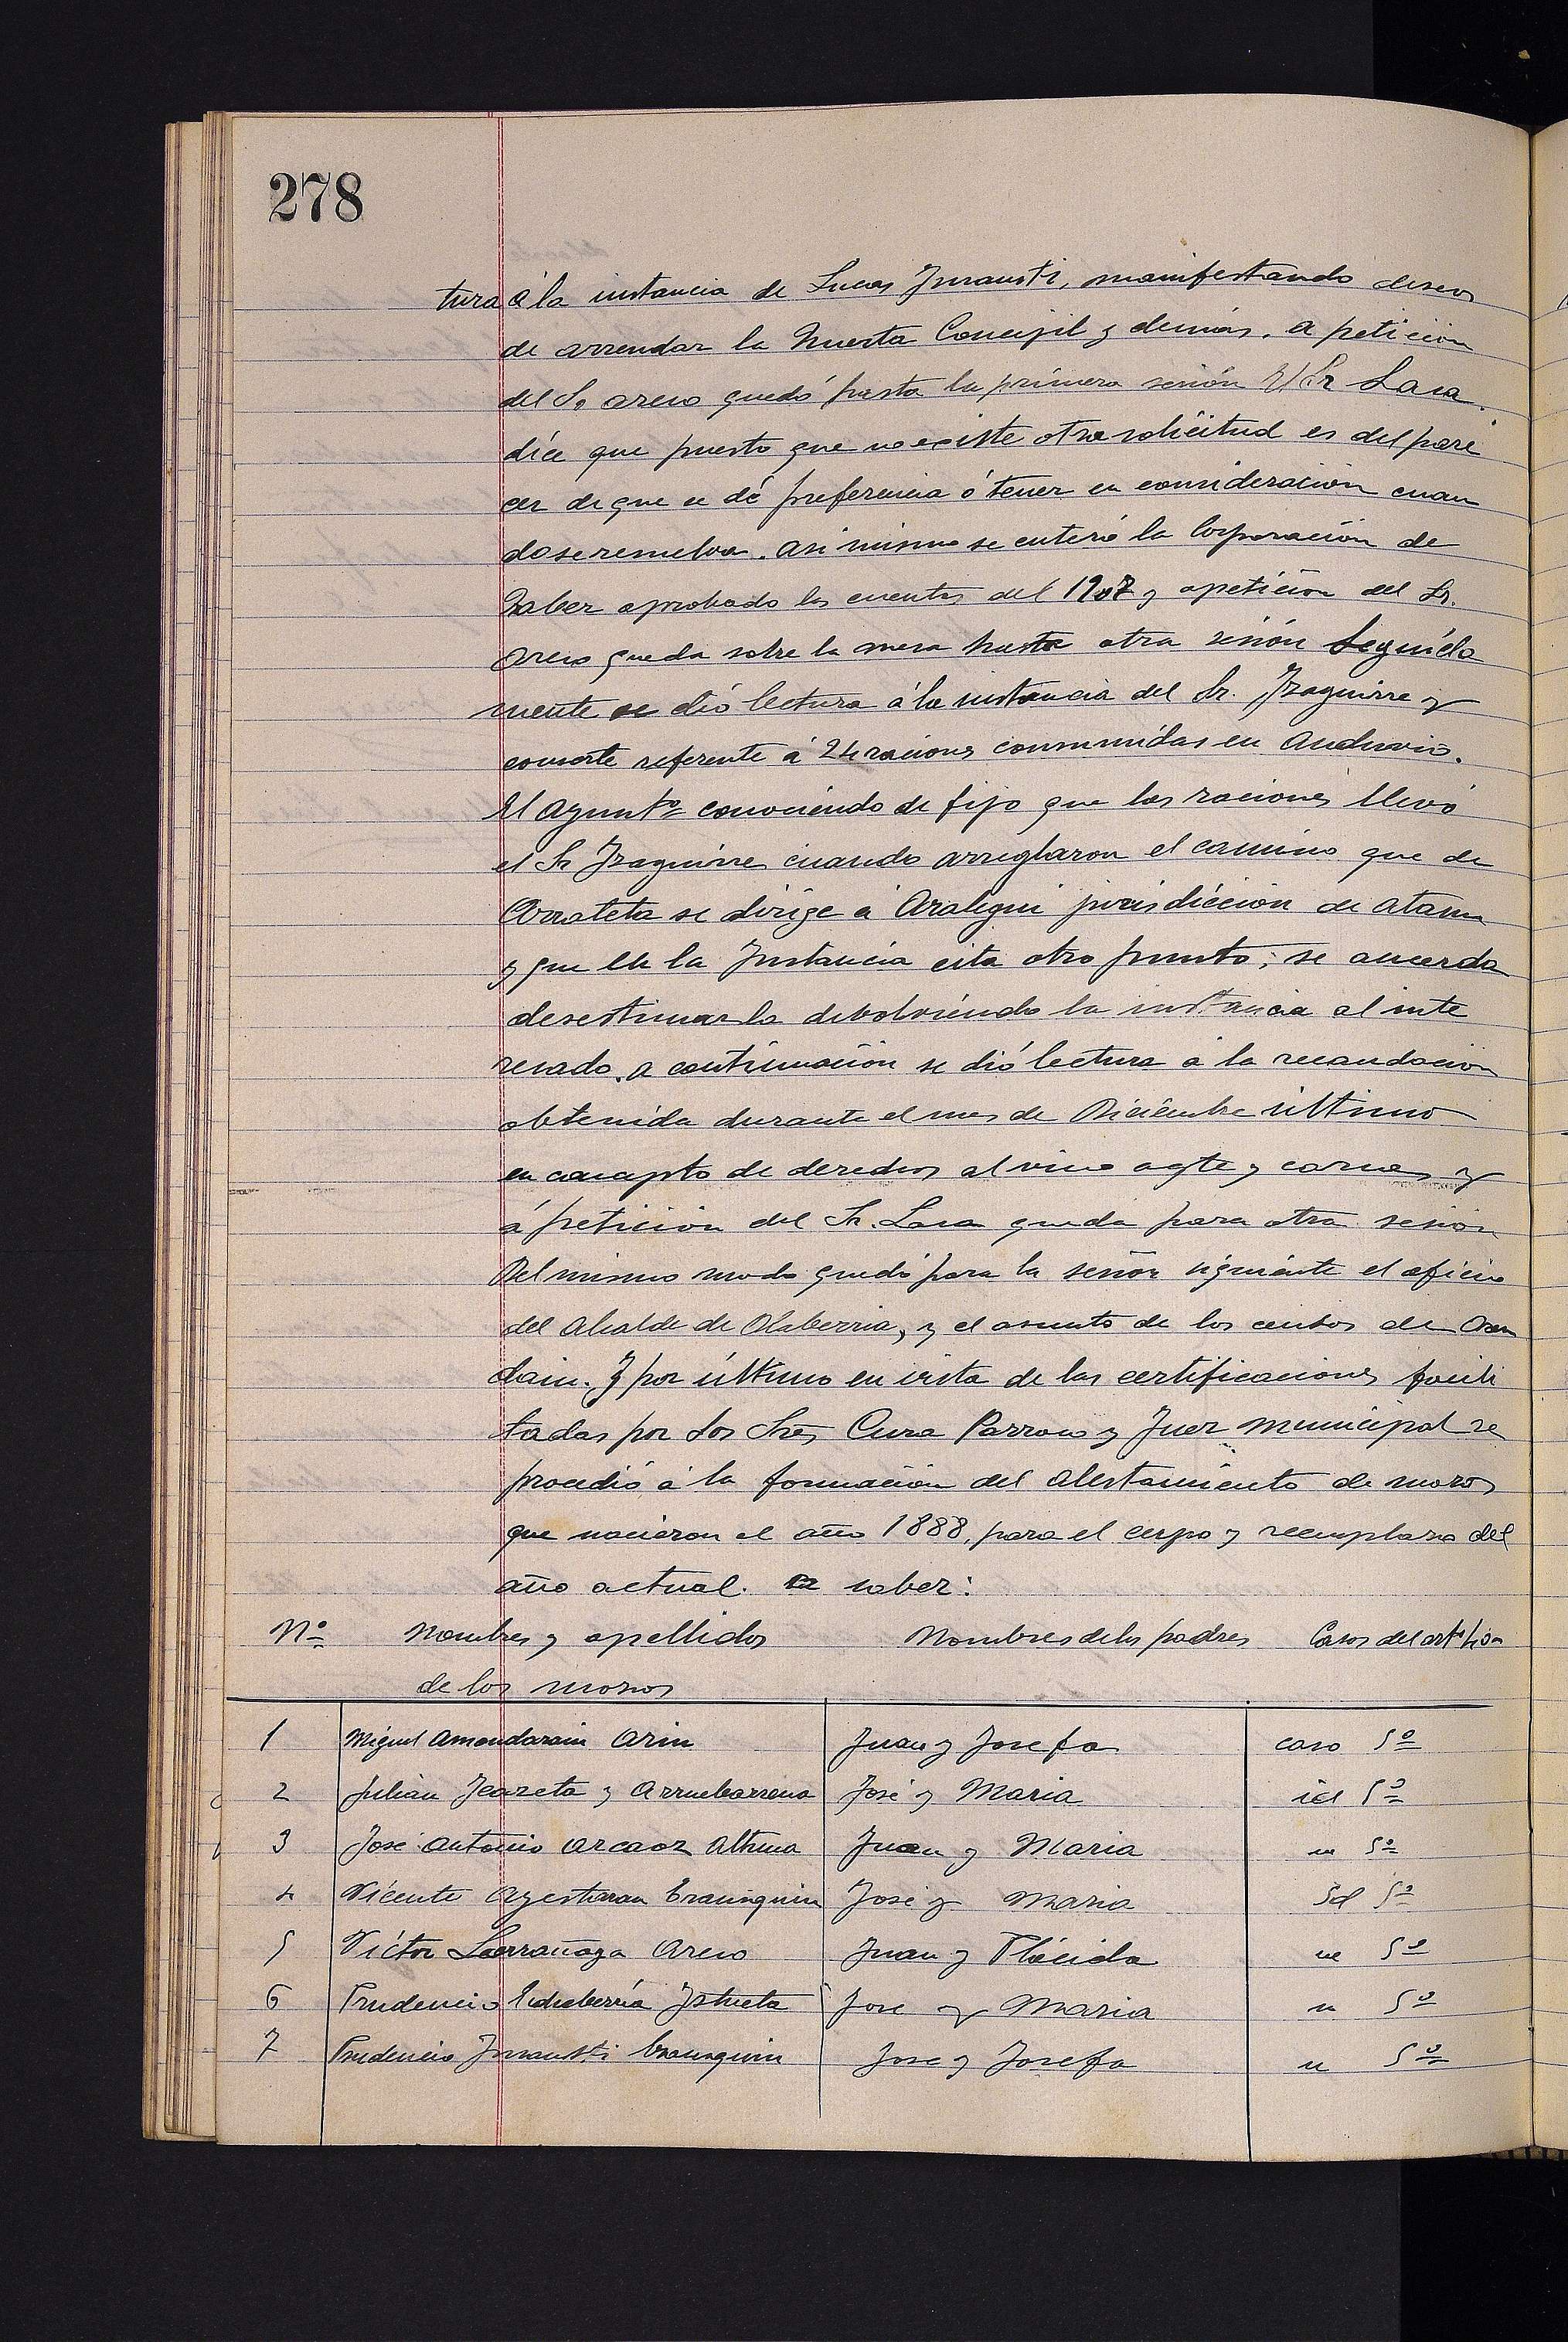 278
tura á la instancia de Lucas Inrausti, manifestando deseos
de arrendar la Huerta Concejil y demás. a petición
del Sr areso quedó hasta la primera sesión El Sr Lasa.
dice que puesto que no existe otra solicitud es del pare
cer de que se dé preferencia ó tener en consideración cuan
do se resuelva. asi mismo se enteró la Corporación de
haber aprobado las cuentas del 1907 y apetición del Sr.
areso queda sobre la mesa hasta otra sesión Seguida
mente se dió lectura á la instancia del Sr. Izaguirre y
consorte referente á 24 raciones consumidas en
El Ayuntº conociendo de fijo que las raciones llevó
el Sr Izaguirre cuando arreglaron el camino que de
Arrateta se dirige á Aralegui jurisdicción de ataun
y que en la Instancia cita otro punto; se acuerda
desestimarla debolviendo la instancia al inte
resado. a continuación se dió lectura á la recaudación
obtenida durante el mes de Diciembre último
en concepto de derechos al vino agte y carnes y
á petición del Sr. Lasa queda para otra sesión
Del mismo modo quedó para la sesión siguiente el oficio
del Alcalde de Olaberria, y el asunto de los censos de Oran
dain. Y por último en vista de las certificaciones facili
tadas por los Sres Cura Parroco y Juez municipal se
procedió á la formación del alistamiento de mozos
que nacieron el año 1888, para el cupo y reemplazo del
año actual. a saber:
Nº Nombres y apellidos Nombres de los padres Casos del artº 40
de los mozos
1 Miguel Amondarain Arin Juan y Josefa caso 5º
2 Julian Icazeta y Arruebarrena José y Maria id 5º
3 José Antonio Arcaoz Altuna Juan y Maria " 5º
4 Vicente Ayestaran Eraunquin José y Maria Id 5º
5 Víctor Larrañaga Areso Juan y Plácida " 5º
6 Prudencio Echeberría Istueta Jose y Maria " 5º
7 Prudencio Inrausti Eraunquin Jose y Josefa " 5º